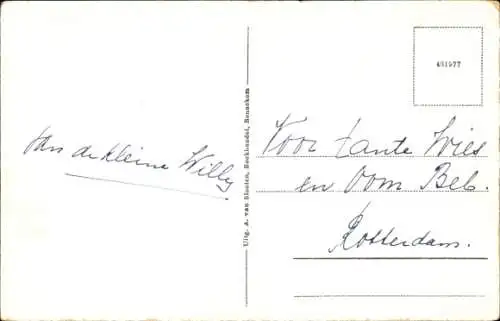 van de kleine Willy.
Uitg. A. van Elsoten, Boekhandel, Bennekom
461977
Voor tante Wies
en Oom Beb.
Rotterdam.